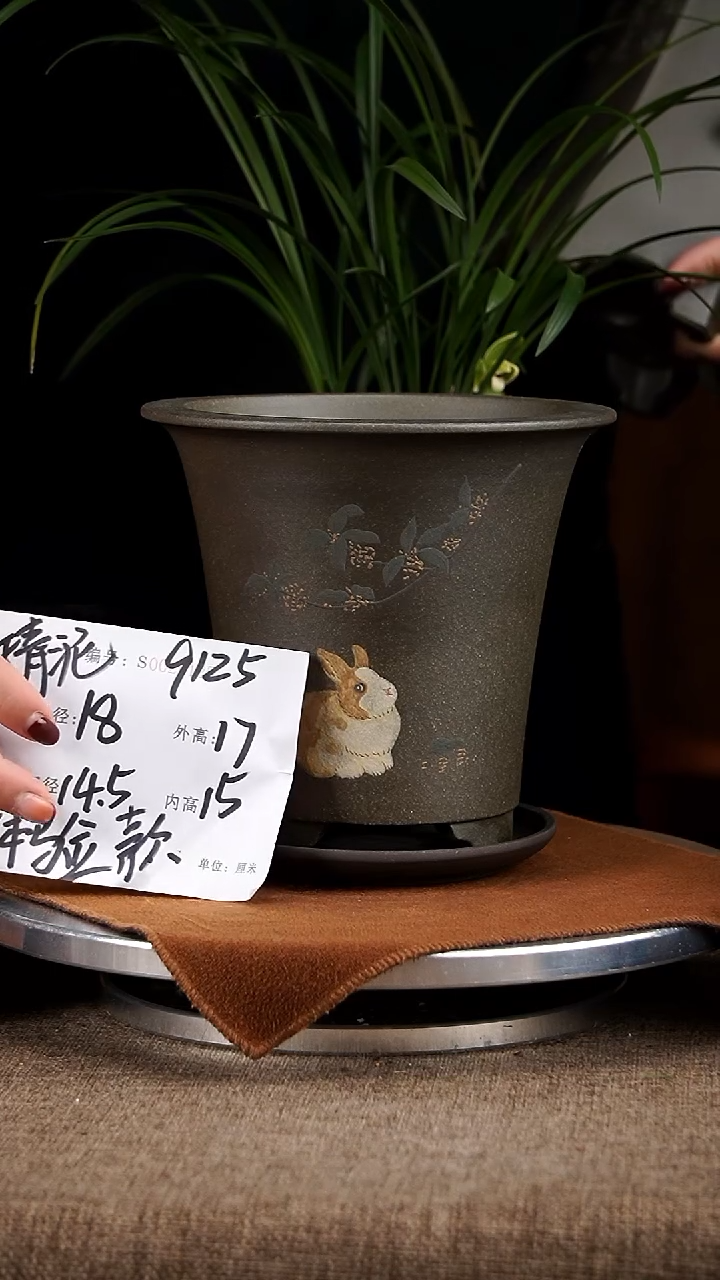 泥 编号: S00 9125
径:18 外高:17
径14.5 内高15
款 单位: 厘米